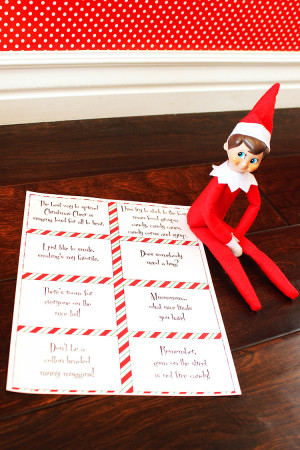 The best way to spread
Christmas Cheer is
singing loud for all to hear.
You try to stick to the four
main food groups:
candy, candy canes,
candy corns and syrup.
I just like to smile,
smiling's my favorite.
Does somebody
need a hug?
There's room for
everyone on the
nice list!
what nice treats
you have!
Don't be a
cotton headed
ninny muggins!
Remember,
gum on the street
is not free candy!